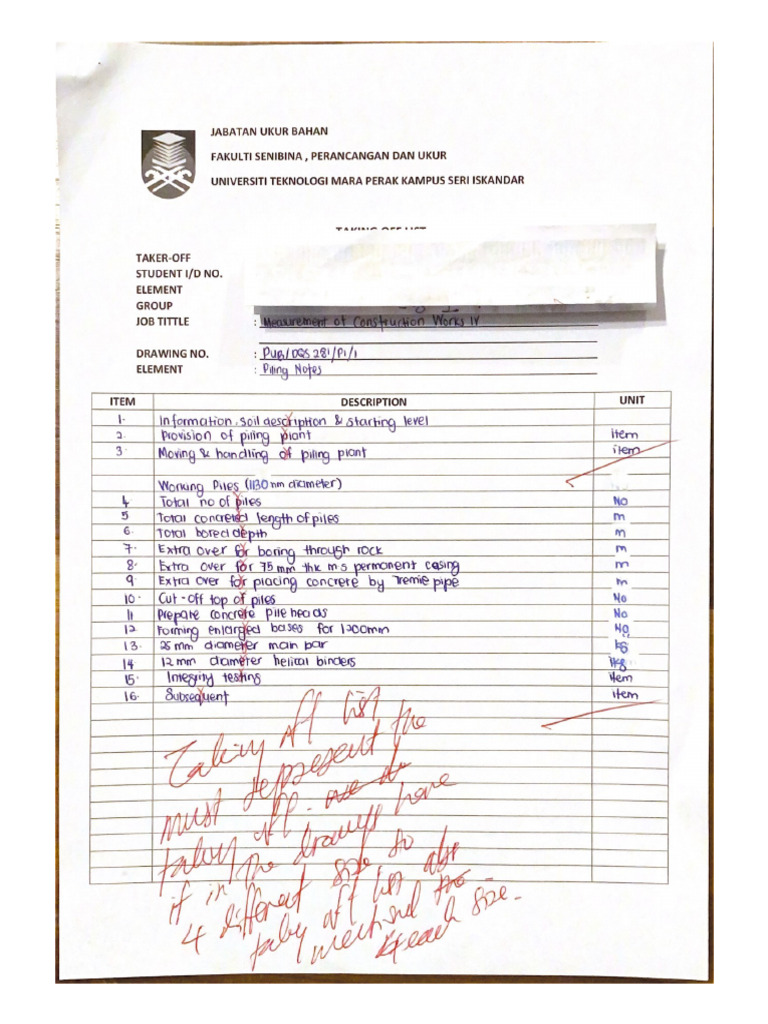 JABATAN UKUR BAHAN
FAKULTI SENIBINA , PERANCANGAN DAN UKUR
UNIVERSITI TEKNOLOGI MARA PERAK KAMPUS SERI ISKANDAR
TAKING OFF LIST
TAKER-OFF
STUDENT I/D NO.
ELEMENT
GROUP
JOB TITTLE : Measurement of Construction Works IV
DRAWING NO. : PUB/DQS 281/P1/1
ELEMENT : Piling Notes
ITEM DESCRIPTION UNIT
1. Information, soil description & starting level
2. Provision of piling plant item
3. Moving & handling of piling plant item
Working Piles (1130 mm diameter)
4 Total no of piles No
5 Total concreted length of piles m
6. Total bored depth m
7. Extra over for boring through rock m
8. Extra over for 75 mm thk m.s permanent casing m
9 Extra over for placing concrete by Tremie pipe m
10. Cut-off top of piles No
11 Prepare concrete pile heads No
12 Forming enlarged bases for 1200mm No
13. 25 mm diameter main bar kg
14 12 mm diameter helical binders kg
15. Integrity testing Item
16. Subsequent item
Taking off list
must represent the
taking off.
if in the drawings have
4 different size so
taking off list also
mentioned the
4 each size.